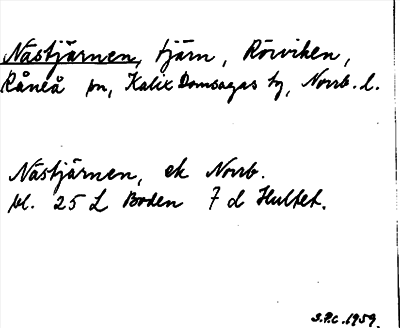 Nästjärnen, tjärn, Rörviken,
Råneå sn, Kalix Domsagas tg, Norrb. l.
Nästjärnen, ek Norrb.
bl. 25 L Boden 7 d Hultet.
S.P.C. 1959.